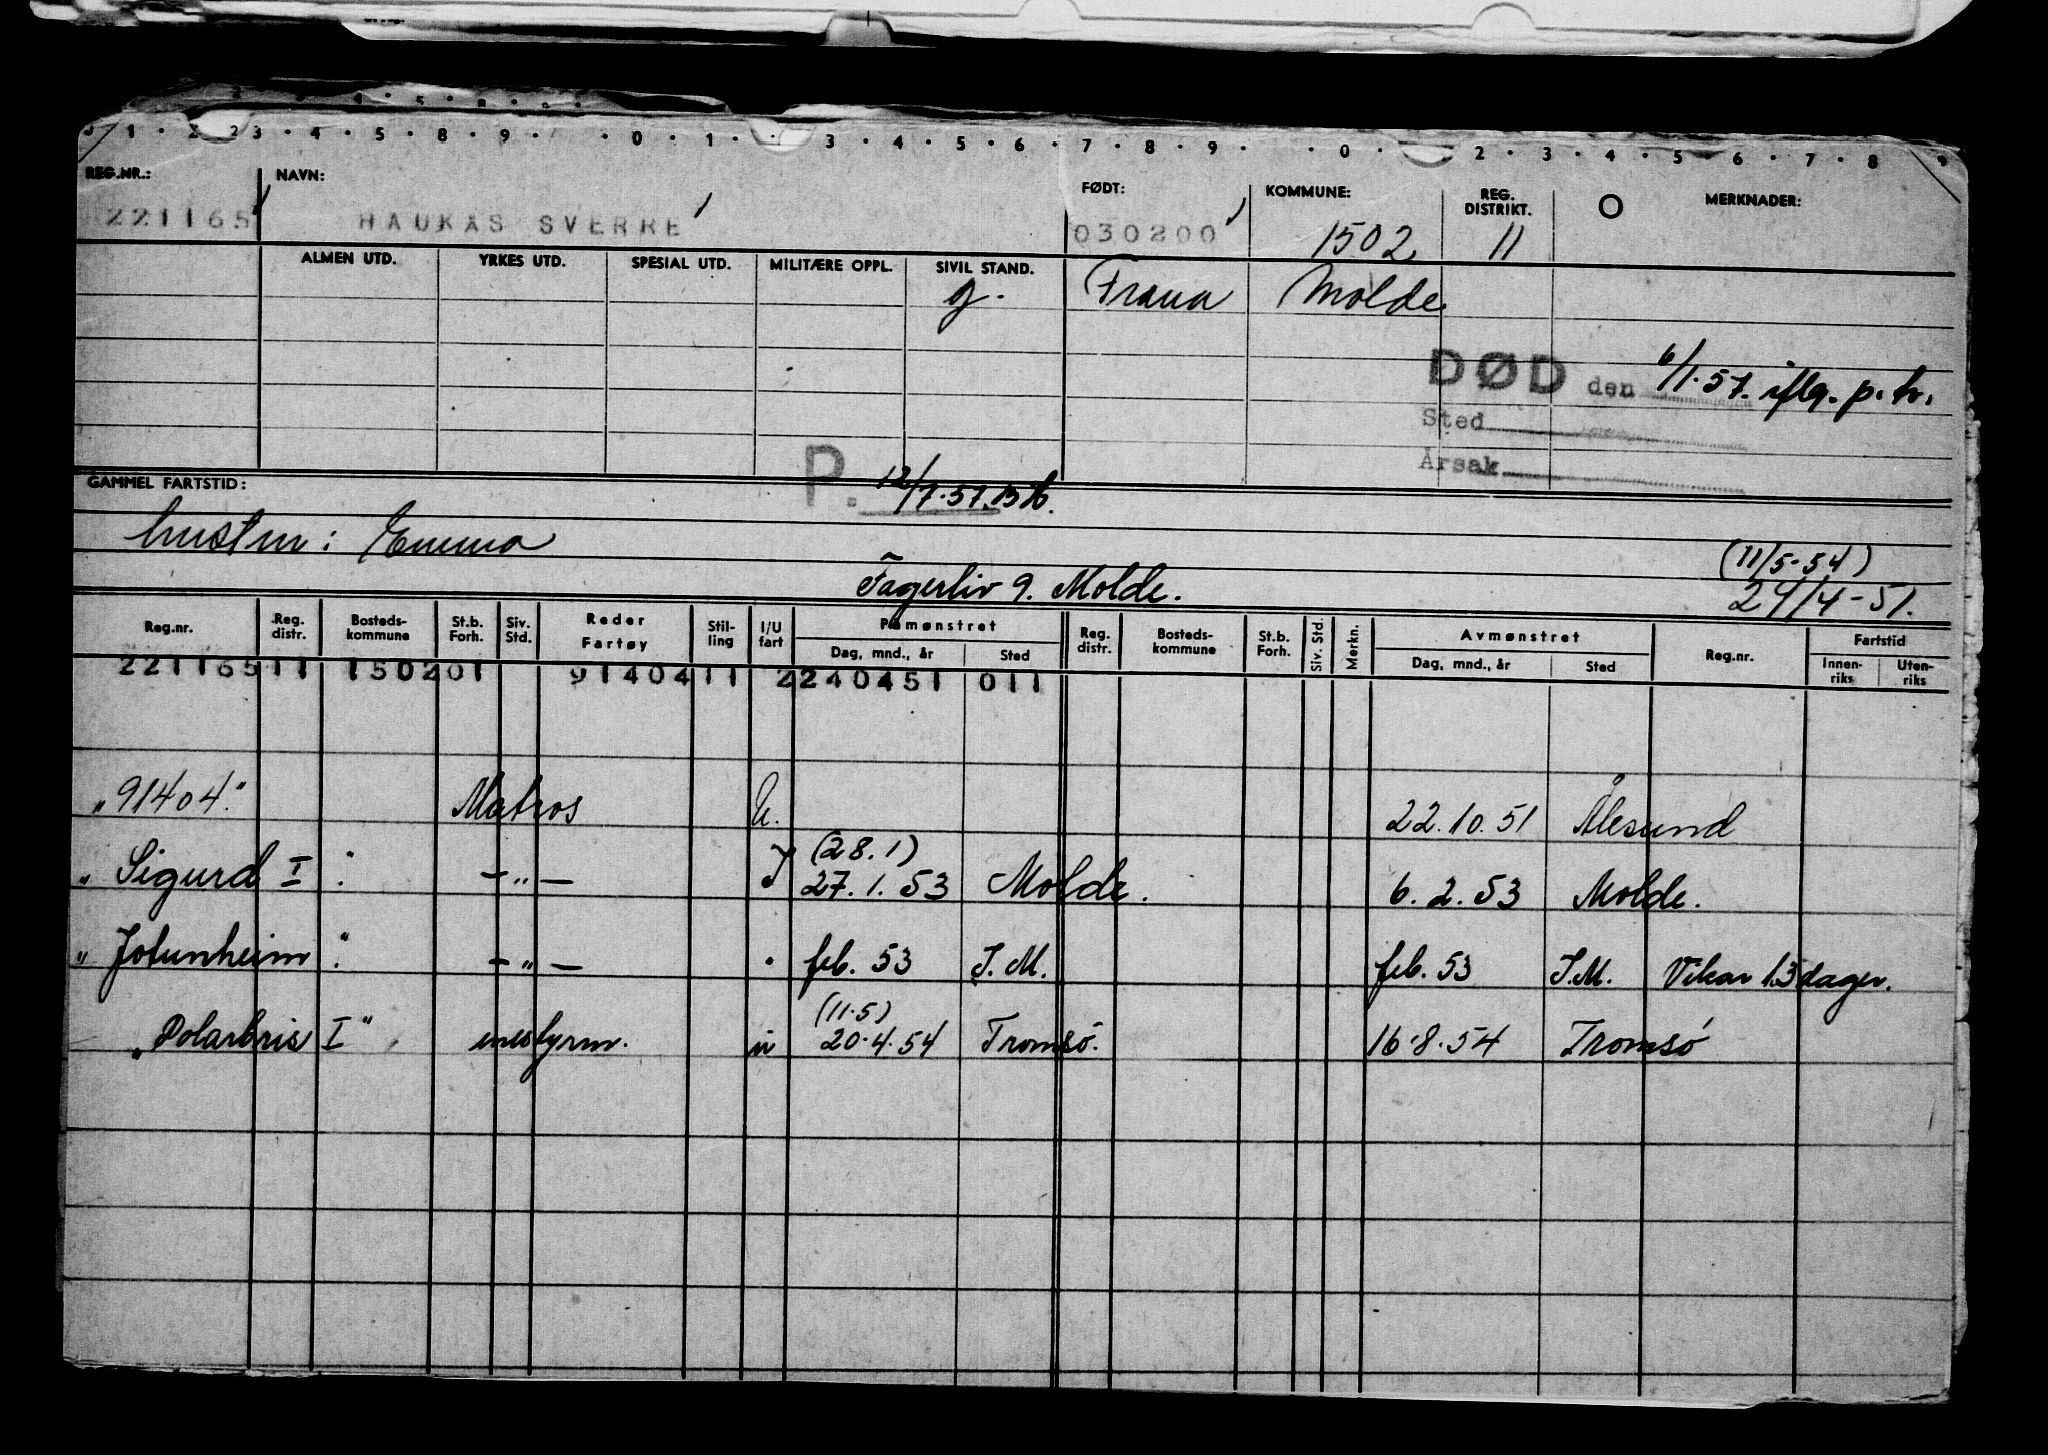 1 · 2 2 3 · 4 · 5 · 8 · 9 · · 0 · 1 · 3 · 4 · 5 · 6 · 7 · 8 · 9 · · 0 · 2 · 3 · 4 · 5 · 6 · 7 · 8 9
REG.NR.: NAVN: FØDT: KOMMUNE: REG. DISTRIKT. O MERKNADER:
221165 HAUKÅS SVERRE 030200 1502 11
ALMEN UTD. YRKES UTD. SPESIAL UTD. MILITÆRE OPPL. SIVIL STAND.
g. Frana Molde
DØD den 6/1.57. iflg. p.tr.
Sted
Årsak
GAMMEL FARTSTID: P. 12/7.57.
hustru: Emma (11/5-54)
Fagerliv 9. Molde. 24/4-51.
Reg.nr. Reg. distr. Bosteds-kommune St.b. Forh. Siv. Std. Reder Fartøy Stil-ling I/U fart Påmønstret Dag, mnd., år Sted Reg. distr. Bosteds-kommune St.b. Forh. Siv. Std. Merkn. Avmønstret Dag, mnd., år Sted Reg.nr. Fartstid Innen-riks Uten-riks
221165 11 150201 9140411 2240451 011
„91404." Matros U. 22.10.51 Ålesund
(28.1)
„Sigurd I" -„- I 27.1.53 Molde. 6.2.53 Molde.
„Jotunheim" -„- " feb. 53 I.M. feb. 53 I.M. Vikar 13 dager.
(11.5)
„Polarbris I" mestyrm. u 20.4.54 Tromsö. 16.8.54 Tromsö